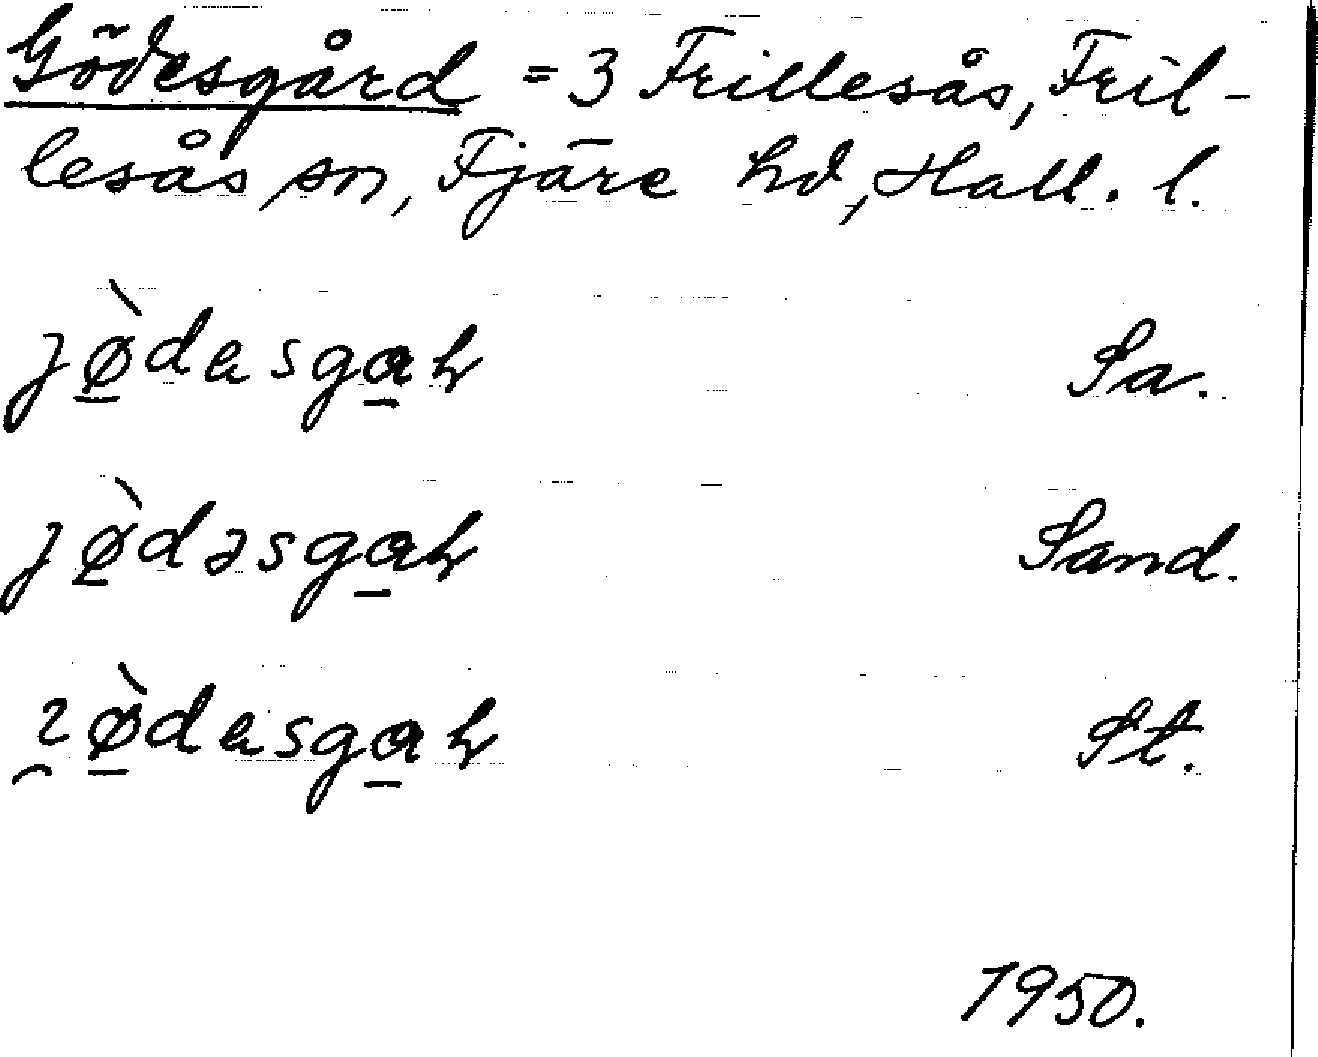 Gödesgård = 3 Frillesås, Fril-
lesås sn, Fjäre hd, Hall. l.
jø̠̀desga̠r Sa.
jø̠̀dəsga̠r Sand.
ø̠̀desga̠r St.
1950.